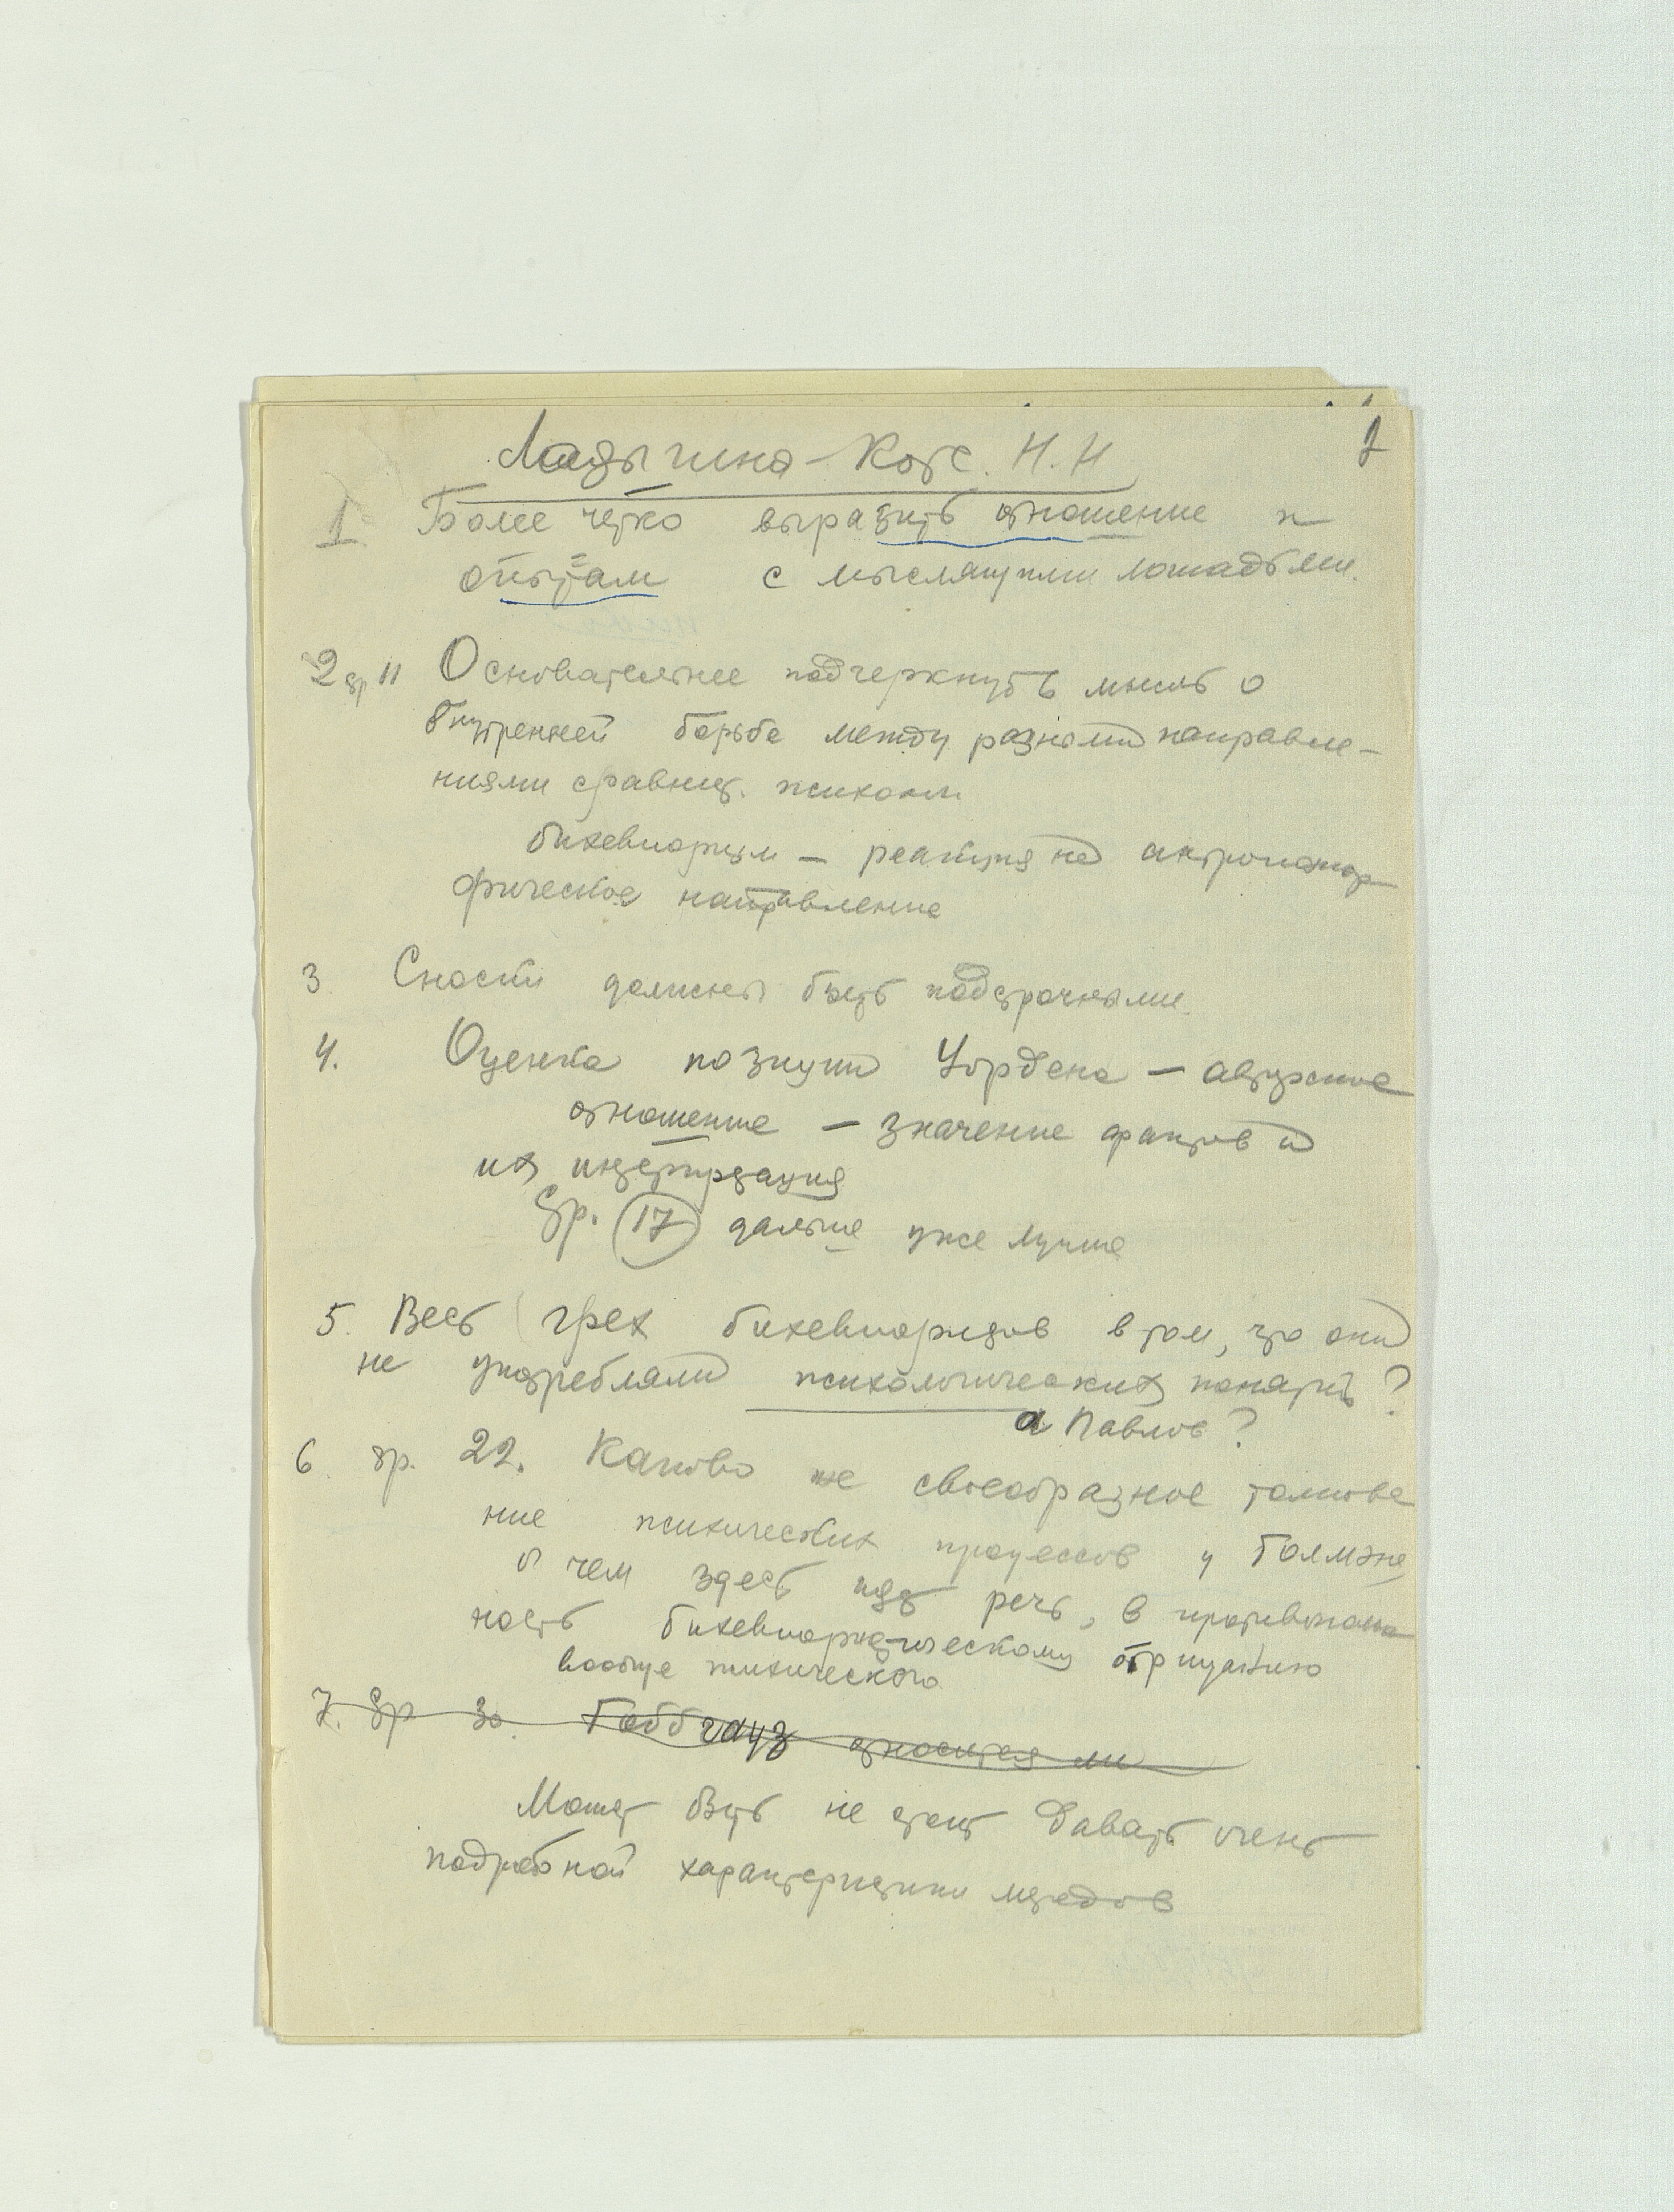 Ладыгина-Котс. Н.Н
1
1 Более четко выразить отношение к
опытам с мыслящими лошадьми.
2 стр 11 Основательнее подчеркнуть мысль о
внутренней борьбе между разными направле-
ниями сравнит. психологии
бихевиоризм — реакция на антропомор-
фическое направление
3 Сноски должны быть подстрочными.
4. Оценка позиции Уордена — авторское
отношение — значение фактов и
их интерпретация
Стр. 17 дальше уже лучше
5. Весь грех бихевиористов в том, что они
не употребляли психологических понятий?
а Павлов?
6 стр. 22. Каково же своеобразное толкова
ние психических процессов у Толмэна
о чем здесь идет речь, в противополож
ность бихевиористическому отрицанию
вообще психического
7. Стр 30. Гоббгауз относится ли
Может быть не стоит давать очень
подробной характеристики методов